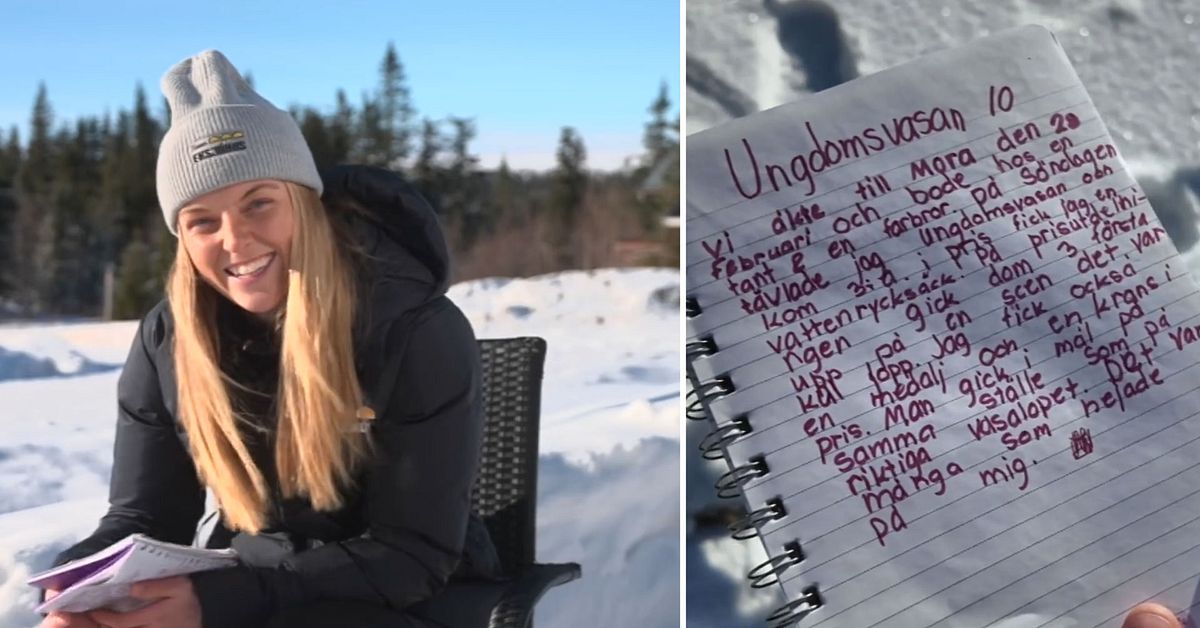 Ungdomsvasan 10
Vi åkte till Mora den 28
februari och bode hos en
tant & en farbror. på Söndagen
tävlade jag Ungdomsvasan och
kom 3:a. i pris fick jag en
vattenrycksäck. på prisutdelni-
ngen gick dom 3 första
upp på en scen det var
kul lopp. jag fick också
en medalj och en krans i
pris. Man gick i mål på
samma ställe som på
riktiga vasalopet. Det var
många som hejade
på mig.